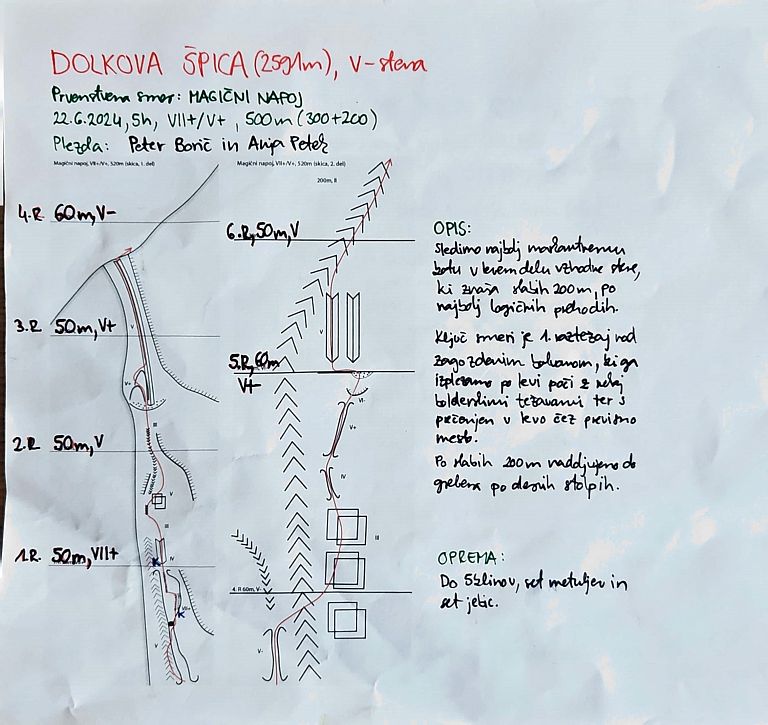 DOLKOVA ŠPICA (2591m), V-stena
Prvenstvena smer: MAGIČNI NAPOJ
22.6.2024, 5h, VII+/V+, 500m (300+200)
Plezala: Peter Borič in Anja Petek
Magični napoj, VII+/V+, 520m (skica, 1. del)
Magični napoj, VII+/V+, 520m (skica, 2. del)
200m, II
4.R. 60m, V-
3.R 50m, V+
V
V+
III
2.R 50m, V
V
III
1.R. 50m, VII+
IV
K
VII+
K
V
6.R, 50m, V
V
5.R, 60m
V+
VI-
V+
IV
III
4. R 60m, V-
V-
OPIS:
Sledimo najbolj markantnemu
botu v levem delu vzhodne stene,
ki znaša slabih 200m, po
najbolj logičnih prehodih.
Ključ smeri je 1. raztežaj nad
zagozdenim balvanom, ki ga
izplezamo po levi poči z nekaj
bolderskimi težavami ter s
prečenjem v levo čez previsno
mesto.
Po slabih 200m nadaljujemo do
grebena po desnih stolpih.
OPREMA:
Do 5 klinov, set metuljev in
set jebic.